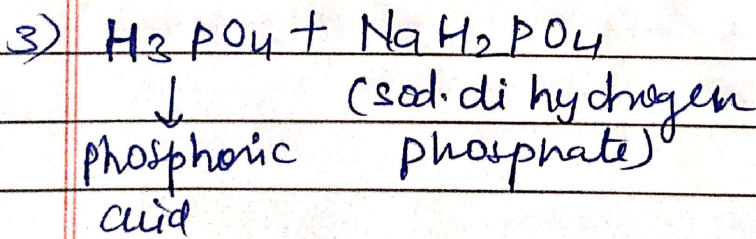 3) H3 PO4 + Na H2 PO4
↓ (sod. di hydrogen
phosphoric phosphate)
acid